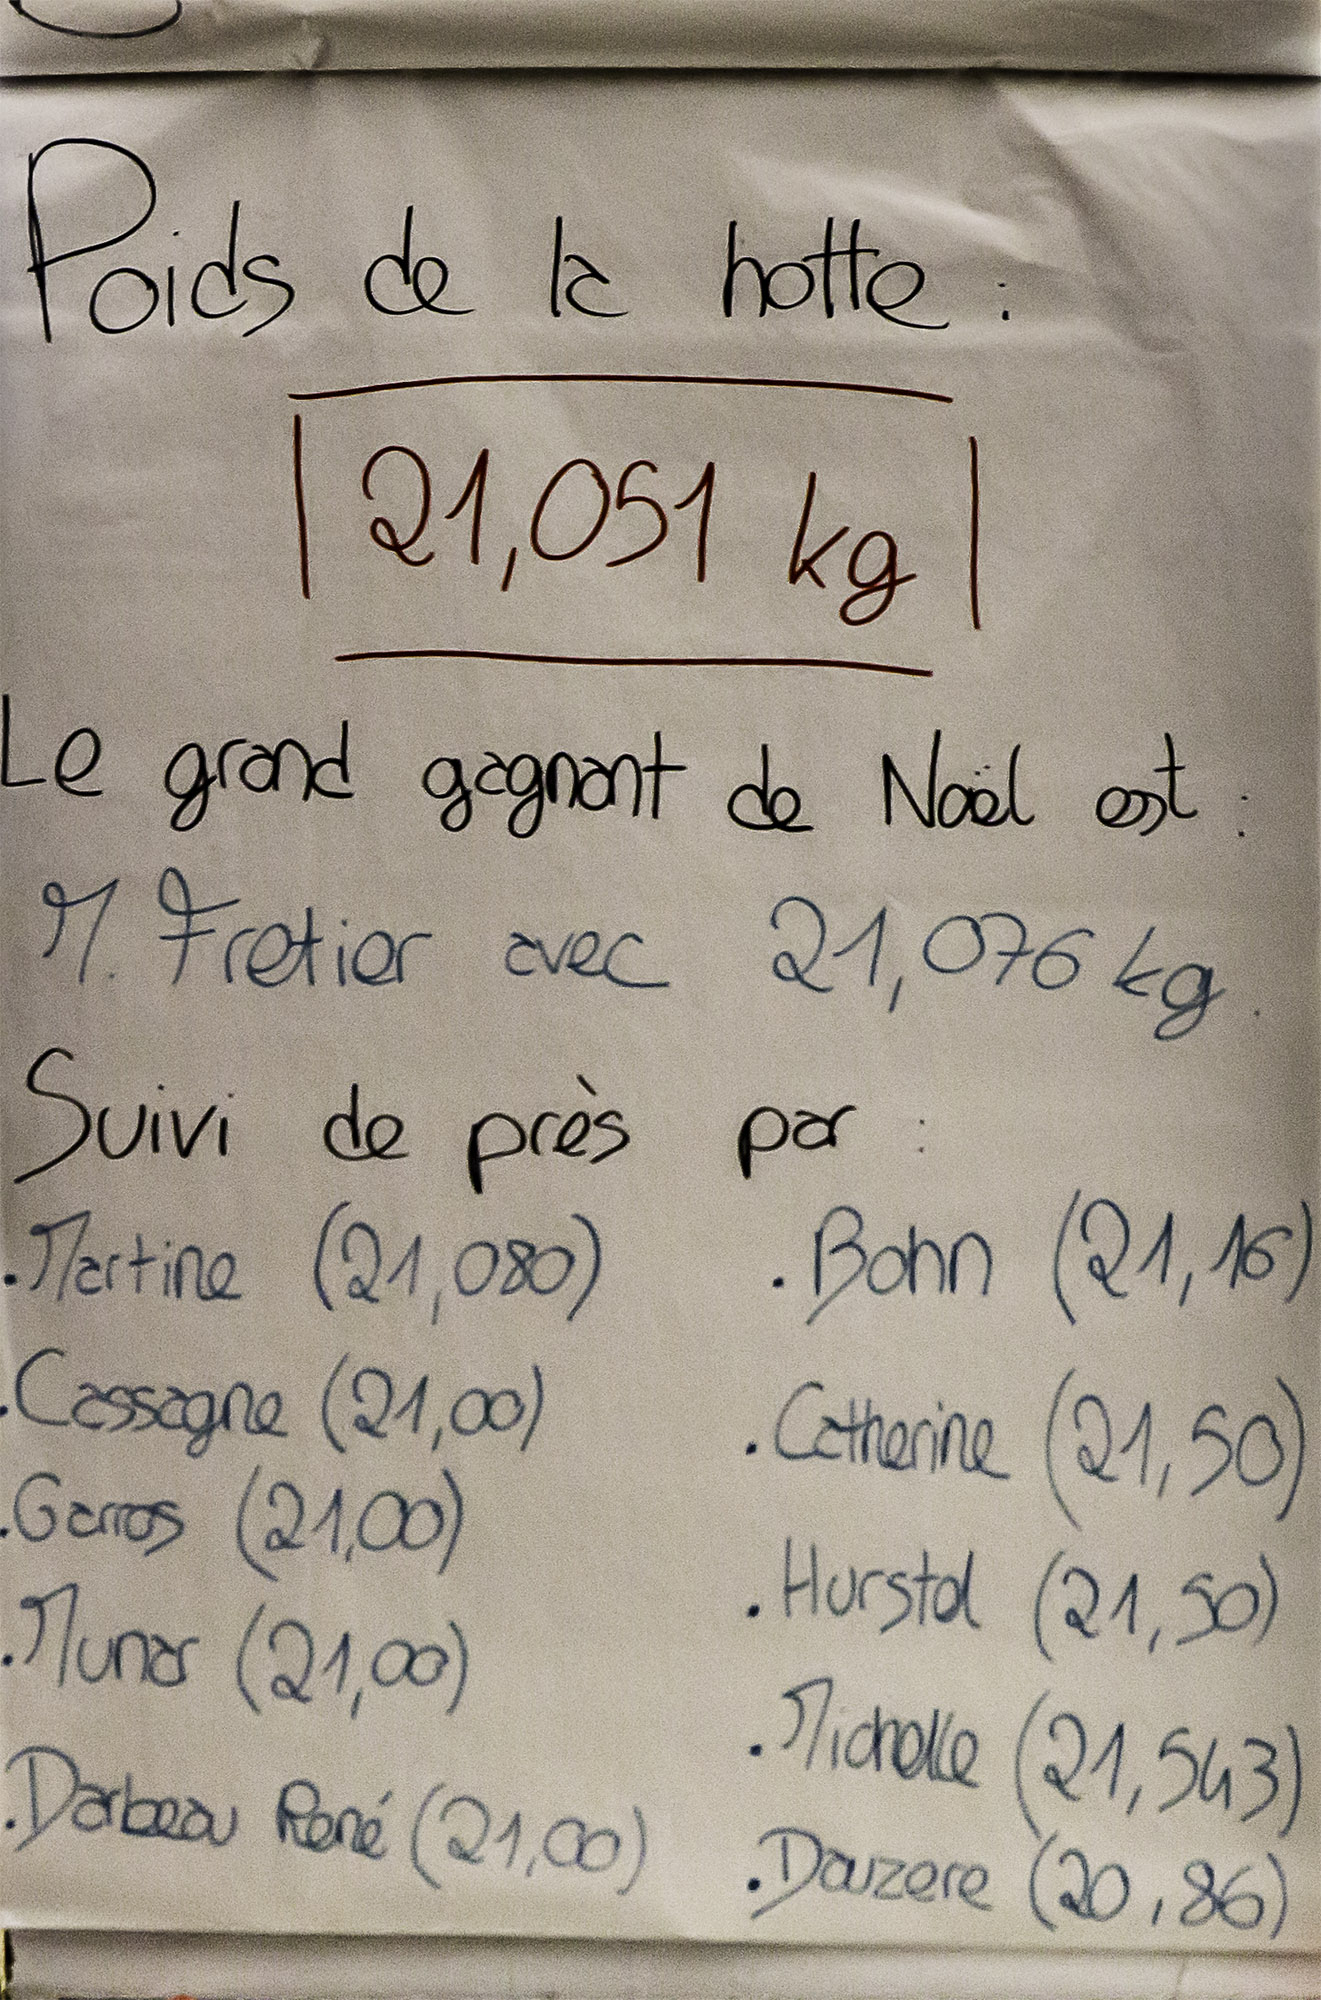 Poids de la hotte :
21,051 kg
Le grand gagnant de Noël est :
M. Fretier avec 21,076 kg.
Suivi de près par :
. Martine (21,080)
. Cassagne (21,00)
. Garros (21,00)
. Munar (21,00)
. Darbeau René (21,00)
. Bohn (21,16)
. Catherine (21,50)
. Hurstel (21,50)
. Michelle (21,543)
. Dauzere (20,86)